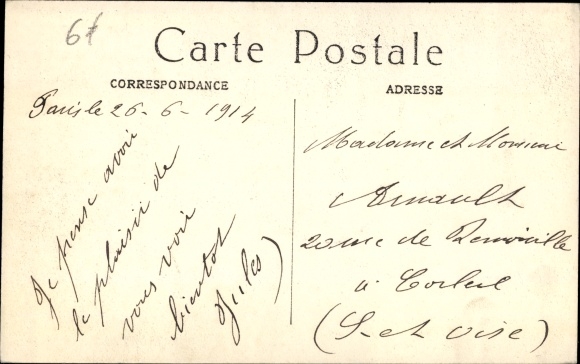 6f
Carte Postale
CORRESPONDANCE
ADRESSE
Paris le 26-6-1914
Je pense avoir
le plaisir de
vous voir
bientot
Jules
Madame et Monsieur
Arnault
20 rue de
à Corbeil
(S-et Oise)